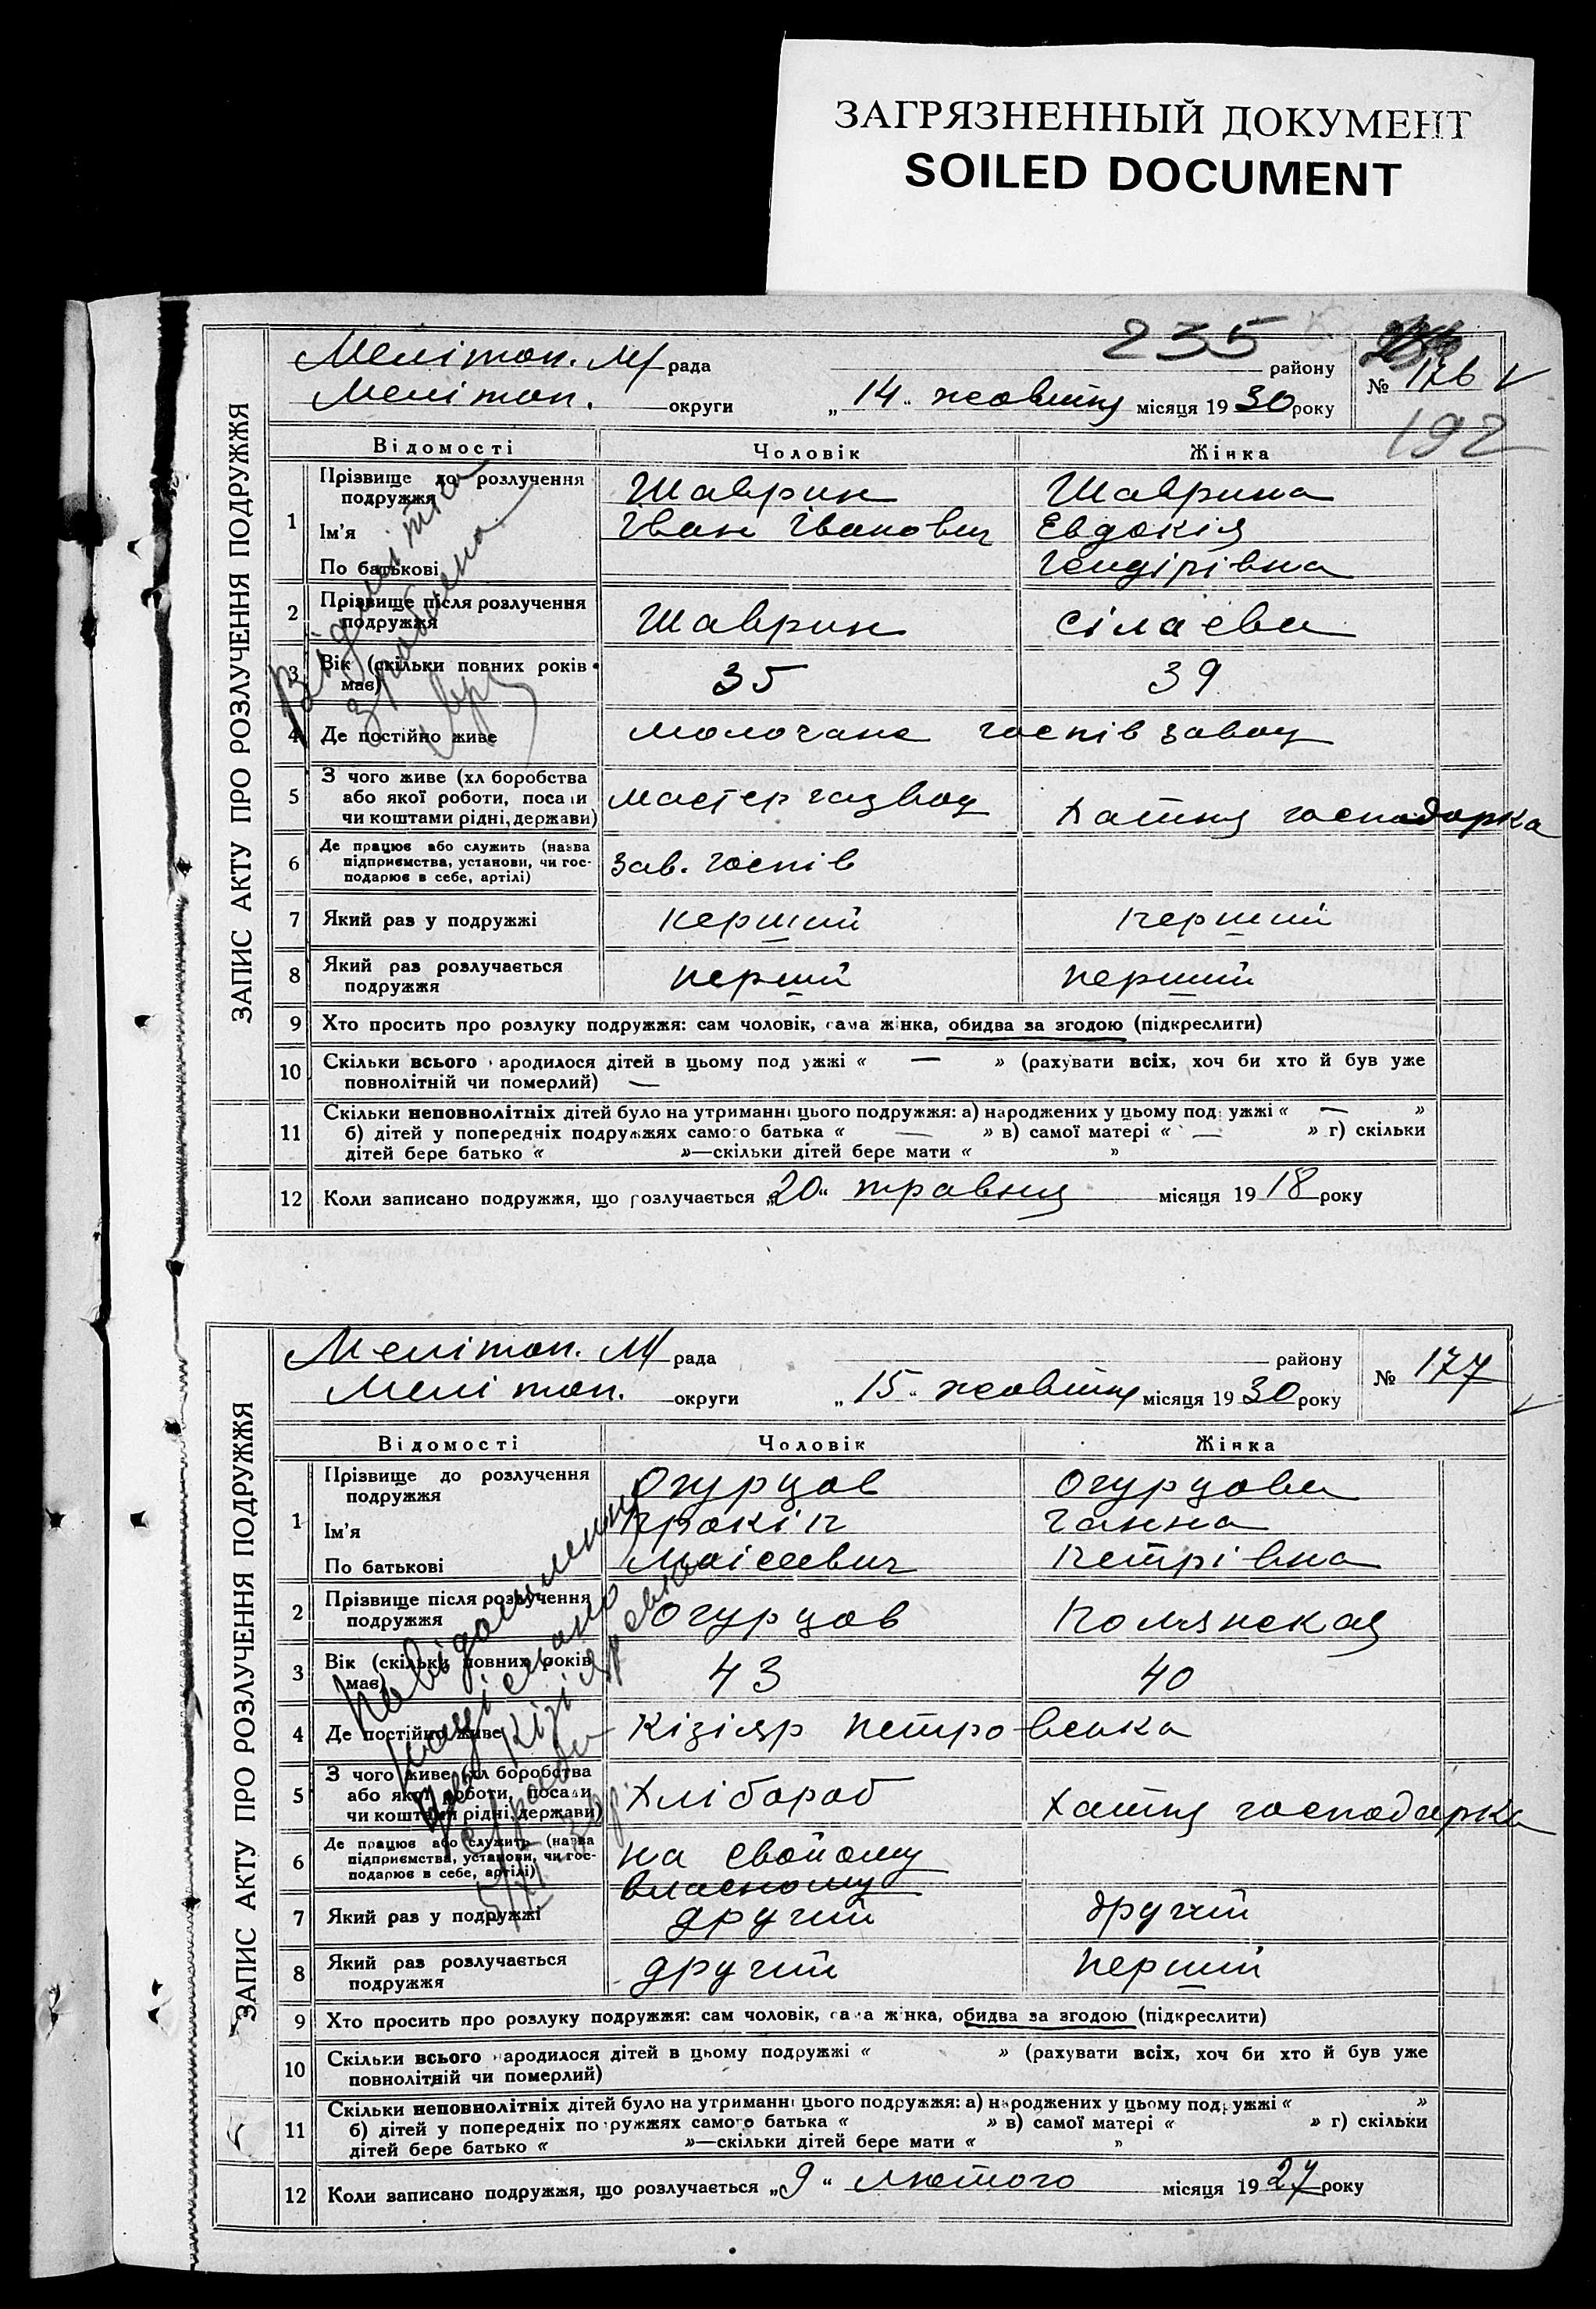 ЗАГРЯЗНЕННЫЙ ДОКУМЕНТ
SOILED DOCUMENT
ЗАПИС АКТУ ПРО РОЗЛУЧЕННЯ ПОДРУЖЖЯ
235
Меліт оп. М/ рада району № 176 V
Меліт оп. округи „ 14 “ жовтня місяця 19 30 року
192
Відомості Чоловік Жінка
1 Прізвище до розлучення подружжя Шаврин Шаврина
Ім’я Іван Іванович Евдокія
По батькові
2 Прізвище після розлучення подружжя Шаврин Сілаева
3 Вік (скільки повних років має) 35 39
4 Де постійно живе Молочанс госпів завод
5 З чого живе (хліборобства
або якої роботи, посади
чи коштами рідні, держави) Мастер Хатня господарка
6 Де працює або служить (назва
підприємства, установи, чи гос-
подарює в себе, артілі) Зав. госпів
7 Який раз у подружжі перший перший
8 Який раз розлучається
подружжя перший перший
9 Хто просить про розлуку подружжя: сам чоловік, сама жінка, обидва за згодою (підкреслити)
10 Скільки всього народилося дітей в цьому подружжі « — » (рахувати всіх, хоч би хто й був уже
повнолітній чи померлий) —
11 Скільки неповнолітніх дітей було на утриманні цього подружжя: а) народжених у цьому подружжі « — »
б) дітей у попередніх подружжях самого батька « — » в) самої матері « — » г) скільки
дітей бере батько « »—скільки дітей бере мати « »
12 Коли записано подружжя, що розлучається „ 20 “ травня місяця 19 18 року
Відмітка
зроблена
ЗАПИС АКТУ ПРО РОЗЛУЧЕННЯ ПОДРУЖЖЯ
Меліт оп. М/ рада району № 177
Меліт оп. округи „ 15 “ жовтня місяця 19 30 року
Відомості Чоловік Жінка
1 Прізвище до розлучення
подружжя Огурцов Огурцова
Ім’я Прокіп Ганна
По батькові Моісеевич Петрівна
2 Прізвище після розлучення
подружжя Огурцов
3 Вік (скільки повних років
має) 43 40
4 Де постійно живе Кізіяр Петровська
5 З чого живе (хліборобства
або якої роботи, посади
чи коштами рідні, держави) Хлібороб Хатня господарка
6 Де працює або служить (назва
підприємства, установи, чи гос-
подарює в себе, артілі) на свойому
власному
7 Який раз у подружжі другий другий
8 Який раз розлучається
подружжя другий перший
9 Хто просить про розлуку подружжя: сам чоловік, сама жінка, обидва за згодою (підкреслити)
10 Скільки всього народилося дітей в цьому подружжі « » (рахувати всіх, хоч би хто й був уже
повнолітній чи померлий)
11 Скільки неповнолітніх дітей було на утриманні цього подружжя: а) народжених у цьому подружжі « »
б) дітей у попередніх подружжях самого батька « » в) самої матері « » г) скільки
дітей бере батько « »—скільки дітей бере мати « »
12 Коли записано подружжя, що розлучається „ 9 “ лютого місяця 19 27 року
Повідомлення
надіслано